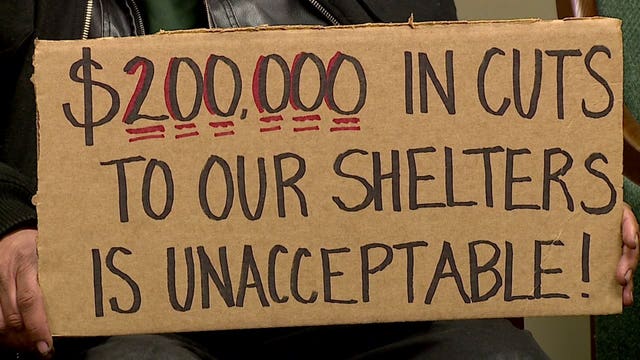 $200,000 IN CUTS
TO OUR SHELTERS
IS UNACCEPTABLE!